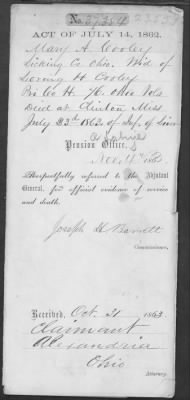 No. 37,354
ACT OF JULY 14, 1862.
Mary A. Cooley
Licking Co Ohio. Wid. of
Loring H Cooley
Pri Co H. 76. Ohio Vols
Died at Clinton Miss
July 22d 1863 of
Pension Office,
Nov 4" 1863
Respectfully referred to the Adjutant
General, for official evidence of service
and death.
Joseph H Barrett
Commissioner.
Received, Oct. 31 1863
Claimant
Alexandria
Ohio
Attorney.